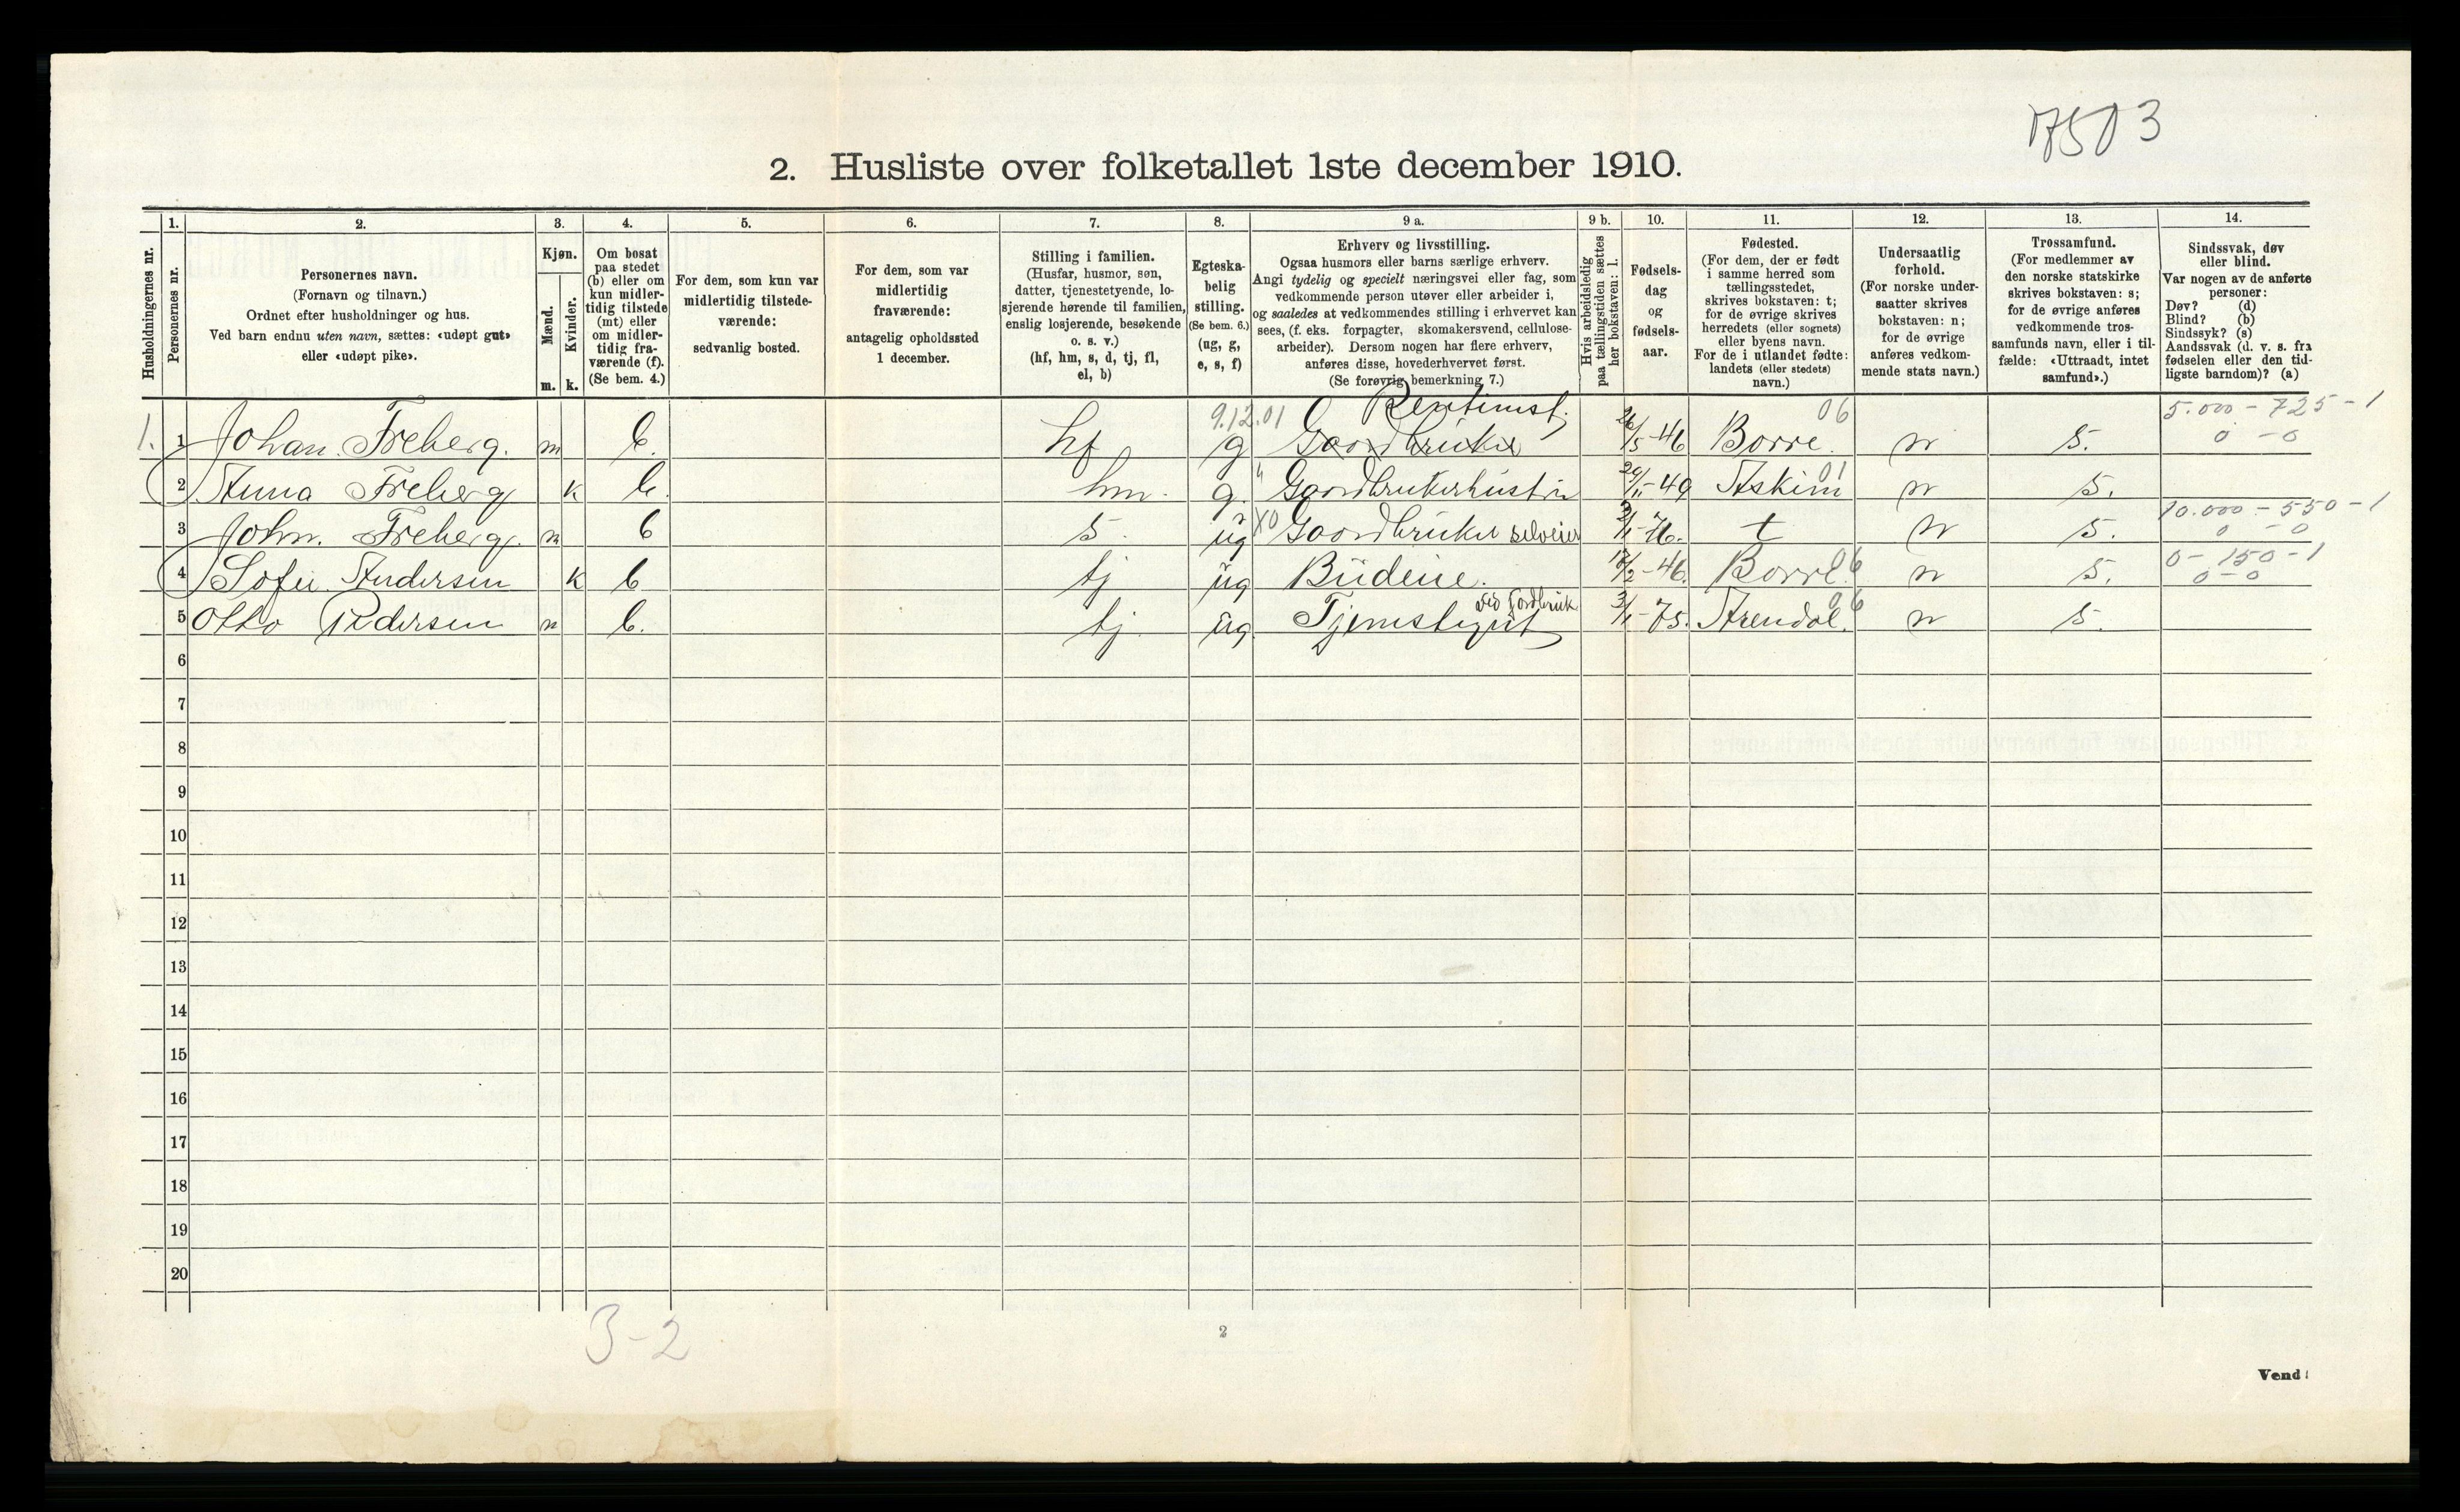 2. Husliste over folketallet 1ste december 1910.
Husholdningernes nr.
1.
Personernes nr.
2.
Personernes navn.
(Fornavn og tilnavn.)
Ordnet efter husholdninger og hus.
Ved barn endnu uten navn, sættes: «udøpt gut»
eller «udøpt pike».
3.
Kjøn.
Mænd.
Kvinder.
m. k.
4.
Om bosat
paa stedet
(b) eller om
kun midler-
tidig tilstede
(mt) eller
om midler-
tidig fra-
værende (f).
(Se bem. 4.)
5.
For dem, som kun var
midlertidig tilstede-
værende:
sedvanlig bosted.
6.
For dem, som var
midlertidig
fraværende:
antagelig opholdssted
1 december.
7.
Stilling i familien.
(Husfar, husmor, søn,
datter, tjenestetyende, lo-
sjerende hørende til familien,
enslig losjerende, besøkende
o. s. v.)
(hf, hm, s, d, tj, fl,
el, b)
8.
Egteska-
belig
stilling.
(Se bem. 6.)
(ug, g,
e, s, f)
9 a.
Erhverv og livsstilling.
Ogsaa husmors eller barns særlige erhverv.
Angi tydelig og specielt næringsvei eller fag, som
vedkommende person utøver eller arbeider i,
og saaledes at vedkommendes stilling i erhvervet kan
sees, (f. eks. forpagter, skomakersvend, cellulose-
arbeider). Dersom nogen har flere erhverv,
anføres disse, hovederhvervet først.
(Se forøvrig bemerkning 7.)
9 b.
Hvis arbeidsledig
paa tællingstiden sættes
her bokstaven: l.
10.
Fødsels-
dag
og
fødsels-
aar.
11.
Fødested.
(For dem, der er født
i samme herred som
tællingsstedet,
skrives bokstaven: t;
for de øvrige skrives
herredets (eller sognets)
eller byens navn.
For de i utlandet fødte:
landets (eller stedets)
navn.)
12.
Undersaatlig
forhold.
(For norske under-
saatter skrives
bokstaven: n;
for de øvrige
anføres vedkom-
mende stats navn.)
13.
Trossamfund.
(For medlemmer av
den norske statskirke
skrives bokstaven: s;
for de øvrige anføres
vedkommende tros-
samfunds navn, eller i til-
fælde: «Uttraadt, intet
samfund».)
14.
Sindssvak, døv
eller blind.
Var nogen av de anførte
personer:
Døv? (d)
Blind? (b)
Sindssyk? (s)
Aandssvak (d. v. s. fra
fødselen eller den tid-
ligste barndom)? (a)
9.12.01 Rentenist. 06 5.000 - 725 - 1
1. 1 Johan. Freberg. m b. hf g Gaardbruker 26/5-46 Borre. n s. 0 - 0
2 Anna Freberg k b. hm. g. " Gaardbrukerhustru 29/11-49 Askim 01 n s.
10.000 - 550 - 1
3 John. Freberg. m b s. ug X0 Gaardbruker selveier 2/1-76. t n s. 0 - 0
0 - 150 - 1
4 Sofie Andersen k b tj ug Budeie. 17/2-46. Borre. 06 n s. 0 - 0
ved Jordbruk 06
5 Otto Pedersen m b. tj. ug. Tjenstegut 3/1-75. Arendal. n s.
6
7
8
9
10
11
12
13
14
15
16
17
18
19
20
3-2
2
Vend!